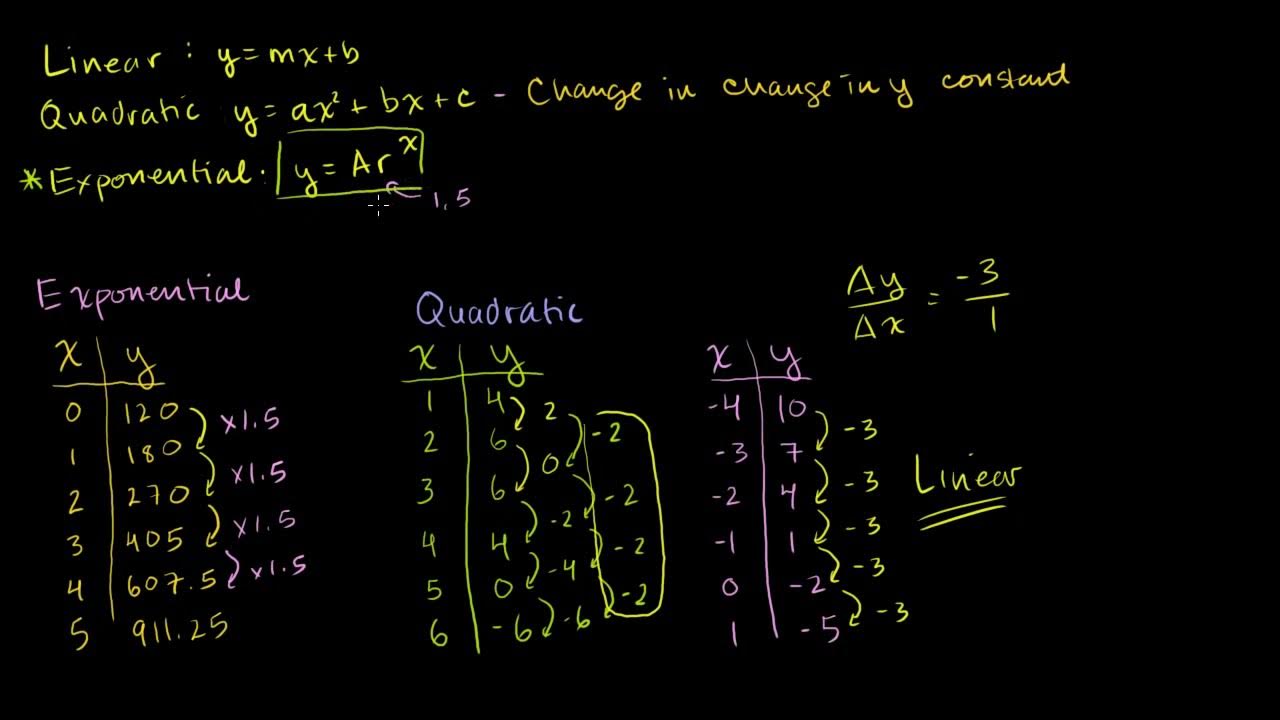 Linear : y = mx + b
Quadratic y = ax² + bx + c - Change in change in y constant
* Exponential. y = Ar^x
1.5
Exponential
x y
0 120
×1.5
1 180
×1.5
2 270
×1.5
3 405
×1.5
4 607.5
5 911.25
Quadratic
x y
1 4
2
-2
2 6
0
3 6
-2
-2
4 4
-2
-4
5 0
-2
-6
6 -6
Δy/Δx = -3/1
x y
-4 10
-3
-3 7
-3
-2 4
-3
-1 1
-3
0 -2
-3
1 -5
Linear